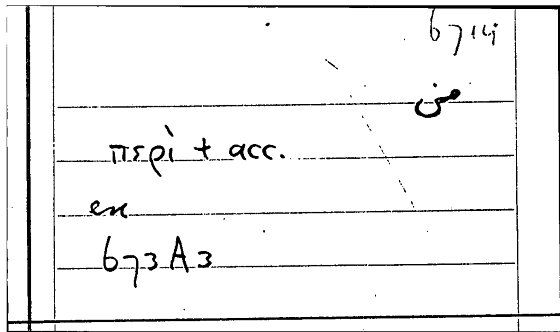 6714
من
περὶ + acc.
en
673A3